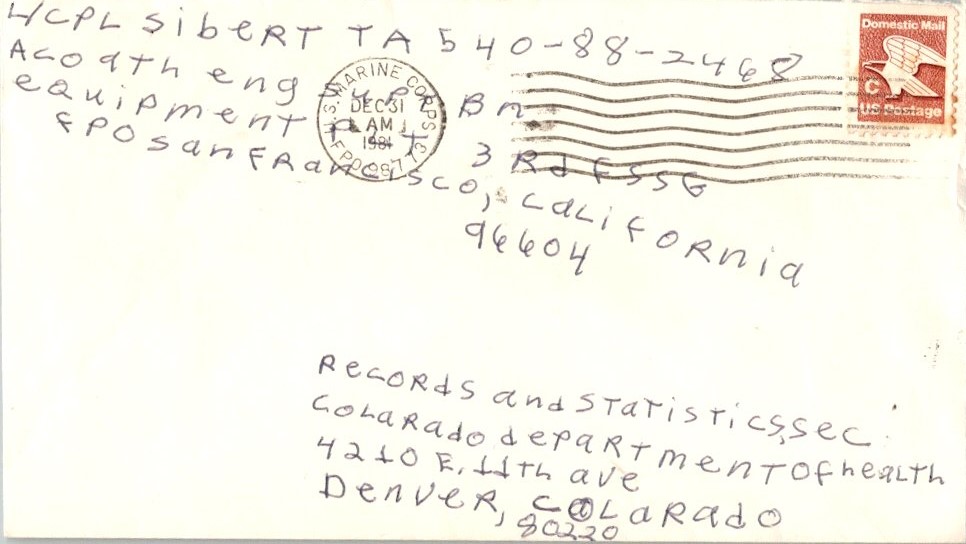 L/CPL SibeRT TA 540-88-2468
A CO 9th eng Bn
equipment 3Rd FSSG
FPO San FRancisco, CaLiFORnia
96604
U.S. MARINE CORPS
DEC 31
AM
1981
FPO
Domestic Mail
C
US Postage
RecoRds and STaTisTics, sec.
CoLaRado depaRTmenT of heaLth
4210 E. 11th ave
DenveR, CoLaRado
80220